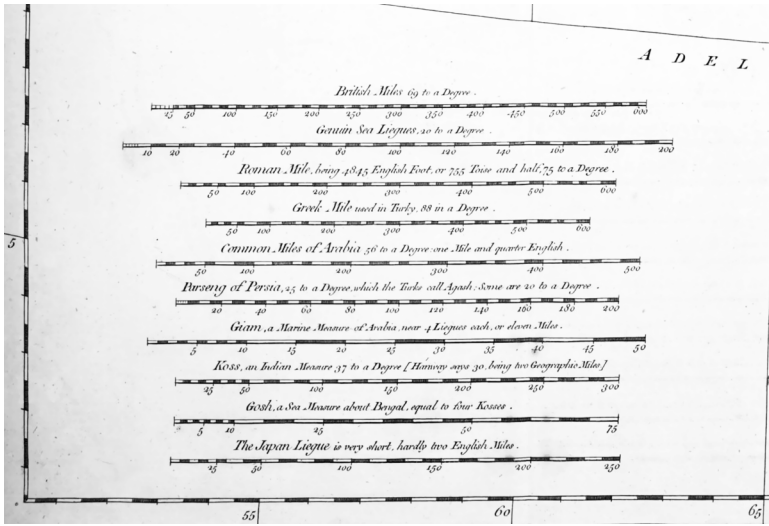 ADEL
British Miles 69 to a Degree.
25 50 100 150 200 250 300 350 400 450 500 550 600
Genuin Sea Liegues, 20 to a Degree.
10 20 40 60 80 100 120 140 160 180 200
Roman Mile, being 4845 English Foot, or 755 Toise and half, 75 to a Degree.
50 100 200 300 400 500 600
Greek Mile used in Turky, 88 in a Degree.
50 100 200 300 400 500 600
5
Common Miles of Arabia 56 to a Degree: one Mile and quarter English.
50 100 200 300 400 500
Parseng of Persia, 25 to a Degree, which the Turks call Agash; Some are 20 to a Degree.
20 40 60 80 100 120 140 160 180 200
Giam, a Marine Measure of Arabia, near 4 Liegues each, or eleven Miles.
5 10 15 20 25 30 35 40 45 50
Koss, an Indian Measure 37 to a Degree [Hanway says 30, being two Geographic Miles]
25 50 100 150 200 250 300
Gosh, a Sea Measure about Bengal, equal to four Kosses.
5 10 25 50 75
The Japan Liegue is very short, hardly two English Miles.
25 50 100 150 200 250
55 60 65